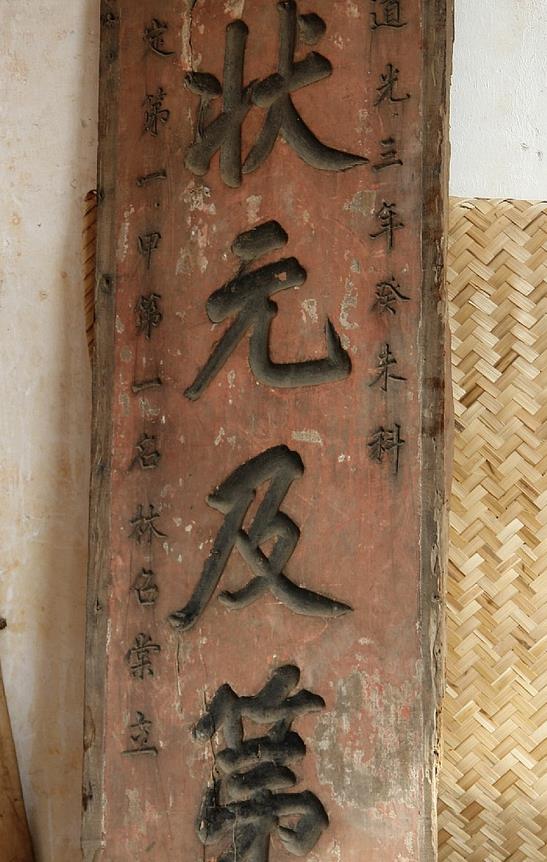 道光三年癸未科
状元及第
定第一甲第一名林召棠立